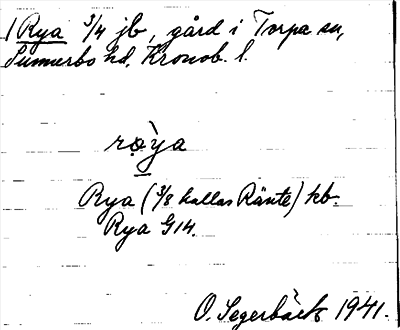 1 Rya 3/4 jb, gård i Torpa sn,
Sunnerbo hd, Kronob. l.
rø̀ya
Rya (3/8 kallas Ränte) kb.
Rya G14.
O. Segerbäck 1941.